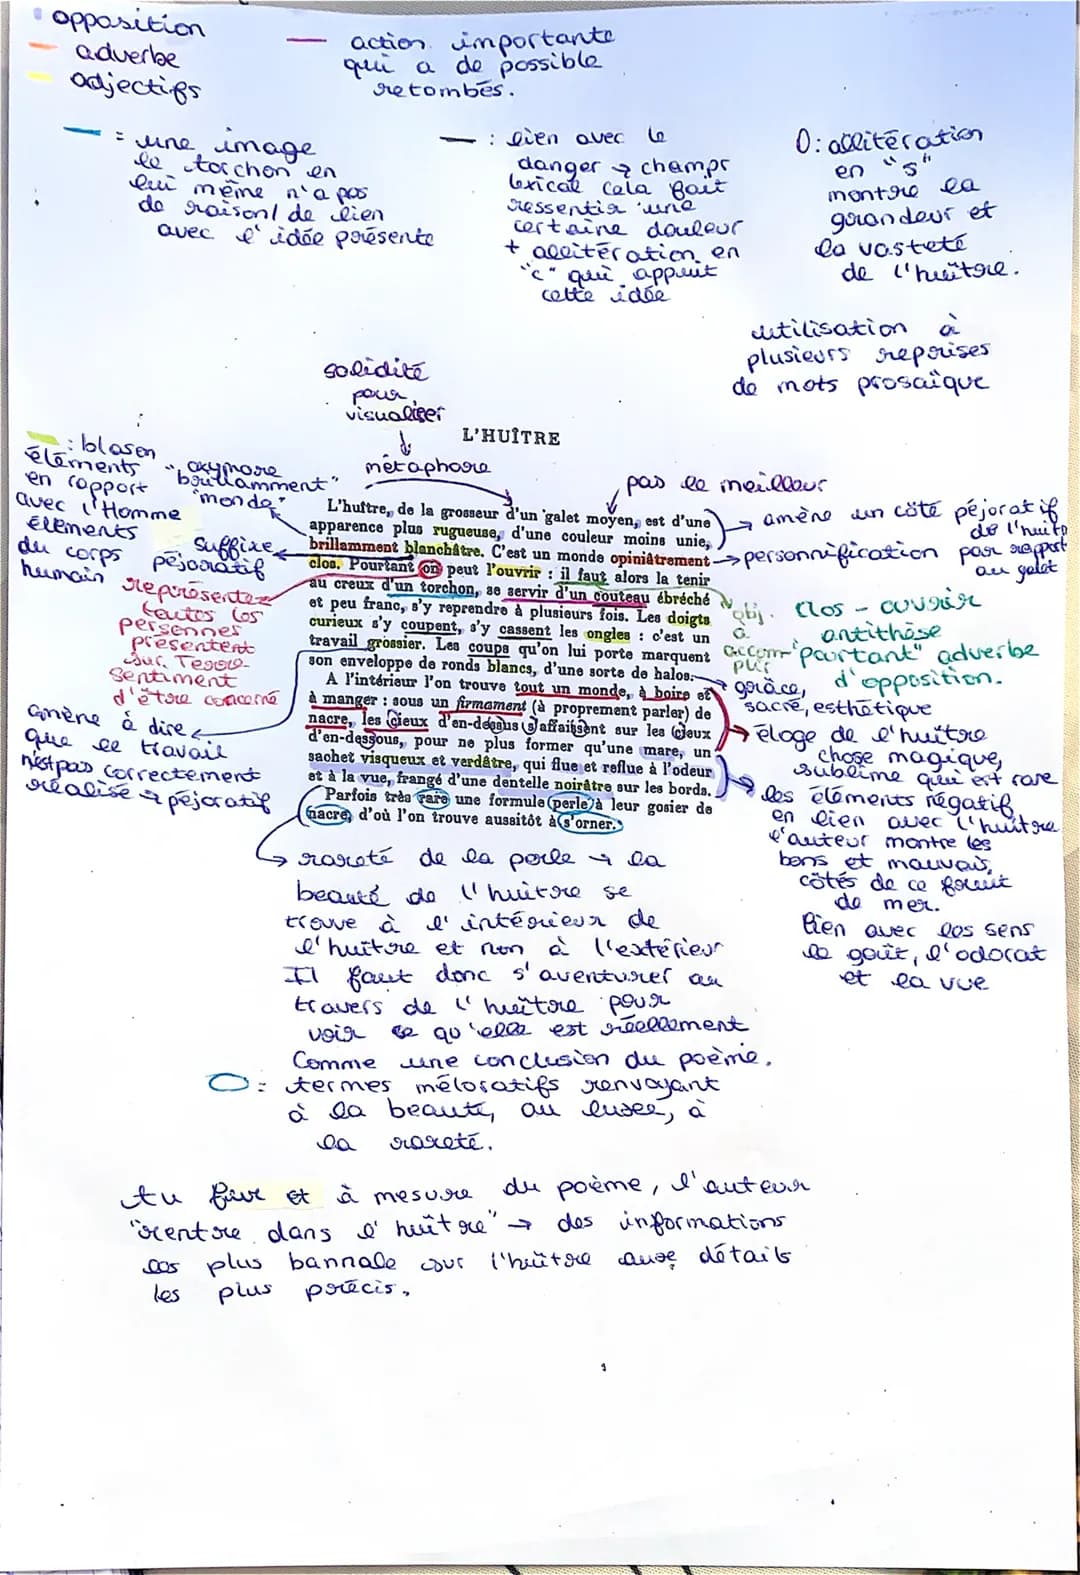 opposition
adverbe
adjectifs
action importante
qui a de possible
retombés.
= une image
le torchon en
lui même n'a pas
de raison/ de lien
avec l'idée présente
: lien avec le
danger → champr
lexical cela fait
ressentir une
certaine douleur
+ allitération en
"c" qui appuit
cette idée
O: allitération
en "s"
montre la
grandeur et
la vasteté
de l'huître.
utilisation à
plusieurs reprises
de mots prosaïque
solidité
pour
visualiser
métaphore
L'HUÎTRE
: blason
éléments
en rapport
avec l'Homme
éléments
du corps
humain
oxymore
"brillamment"
"monde"
suffixe
péjoratif
représente
toutes les
personnes
présentent
sur Terre
sentiment
d'être concerné
amène à dire
que le travail
n'est pas correctement
réalisé → péjoratif
pas le meilleur
L'huître, de la grosseur d'un galet moyen, est d'une
apparence plus rugueuse, d'une couleur moins unie,
brillamment blanchâtre. C'est un monde opiniâtrement
clos. Pourtant on peut l'ouvrir : il faut alors la tenir
au creux d'un torchon, se servir d'un couteau ébréché
et peu franc, s'y reprendre à plusieurs fois. Les doigts
curieux s'y coupent, s'y cassent les ongles : c'est un
travail grossier. Les coups qu'on lui porte marquent
son enveloppe de ronds blancs, d'une sorte de halos.
A l'intérieur l'on trouve tout un monde, à boire et
à manger : sous un firmament (à proprement parler) de
nacre, les cieux d'en-dessus s'affaissent sur les cieux
d'en-dessous, pour ne plus former qu'une mare, un
sachet visqueux et verdâtre, qui flue et reflue à l'odeur
et à la vue, frangé d'une dentelle noirâtre sur les bords.
Parfois très rare une formule perle à leur gosier de
nacre, d'où l'on trouve aussitôt à s'orner.
→ amène un côté péjoratif
de l'huit
par rapport
au galet
→ personnification
obj.
à
accom-
plir
clos - ouvrir
antithèse
"pourtant" adverbe
d'opposition.
grâce,
sacré, esthétique
éloge de l'huître
chose magique,
sublime qui est rare
les éléments négatif
en lien avec l'huître
l'auteur montre les
bons et mauvais
côtés de ce fruit
de mer.
lien avec les sens
le goût, l'odorat
et la vue
→ rareté de la perle → la
beauté de l'huître se
trouve à l'intérieur de
l'huître et non à l'extérieur
Il faut donc s'aventurer au
travers de l'huître pour
voir ce qu'elle est réellement
Comme une conclusion du poème.
= termes mélosatifs renvoyant
à la beauté, au lusee, à
la rareté.
Au fur et à mesure du poème, l'auteur
"rentre dans l'huître" → des informations
les plus bannale sur l'huître aux détails
les plus précis.